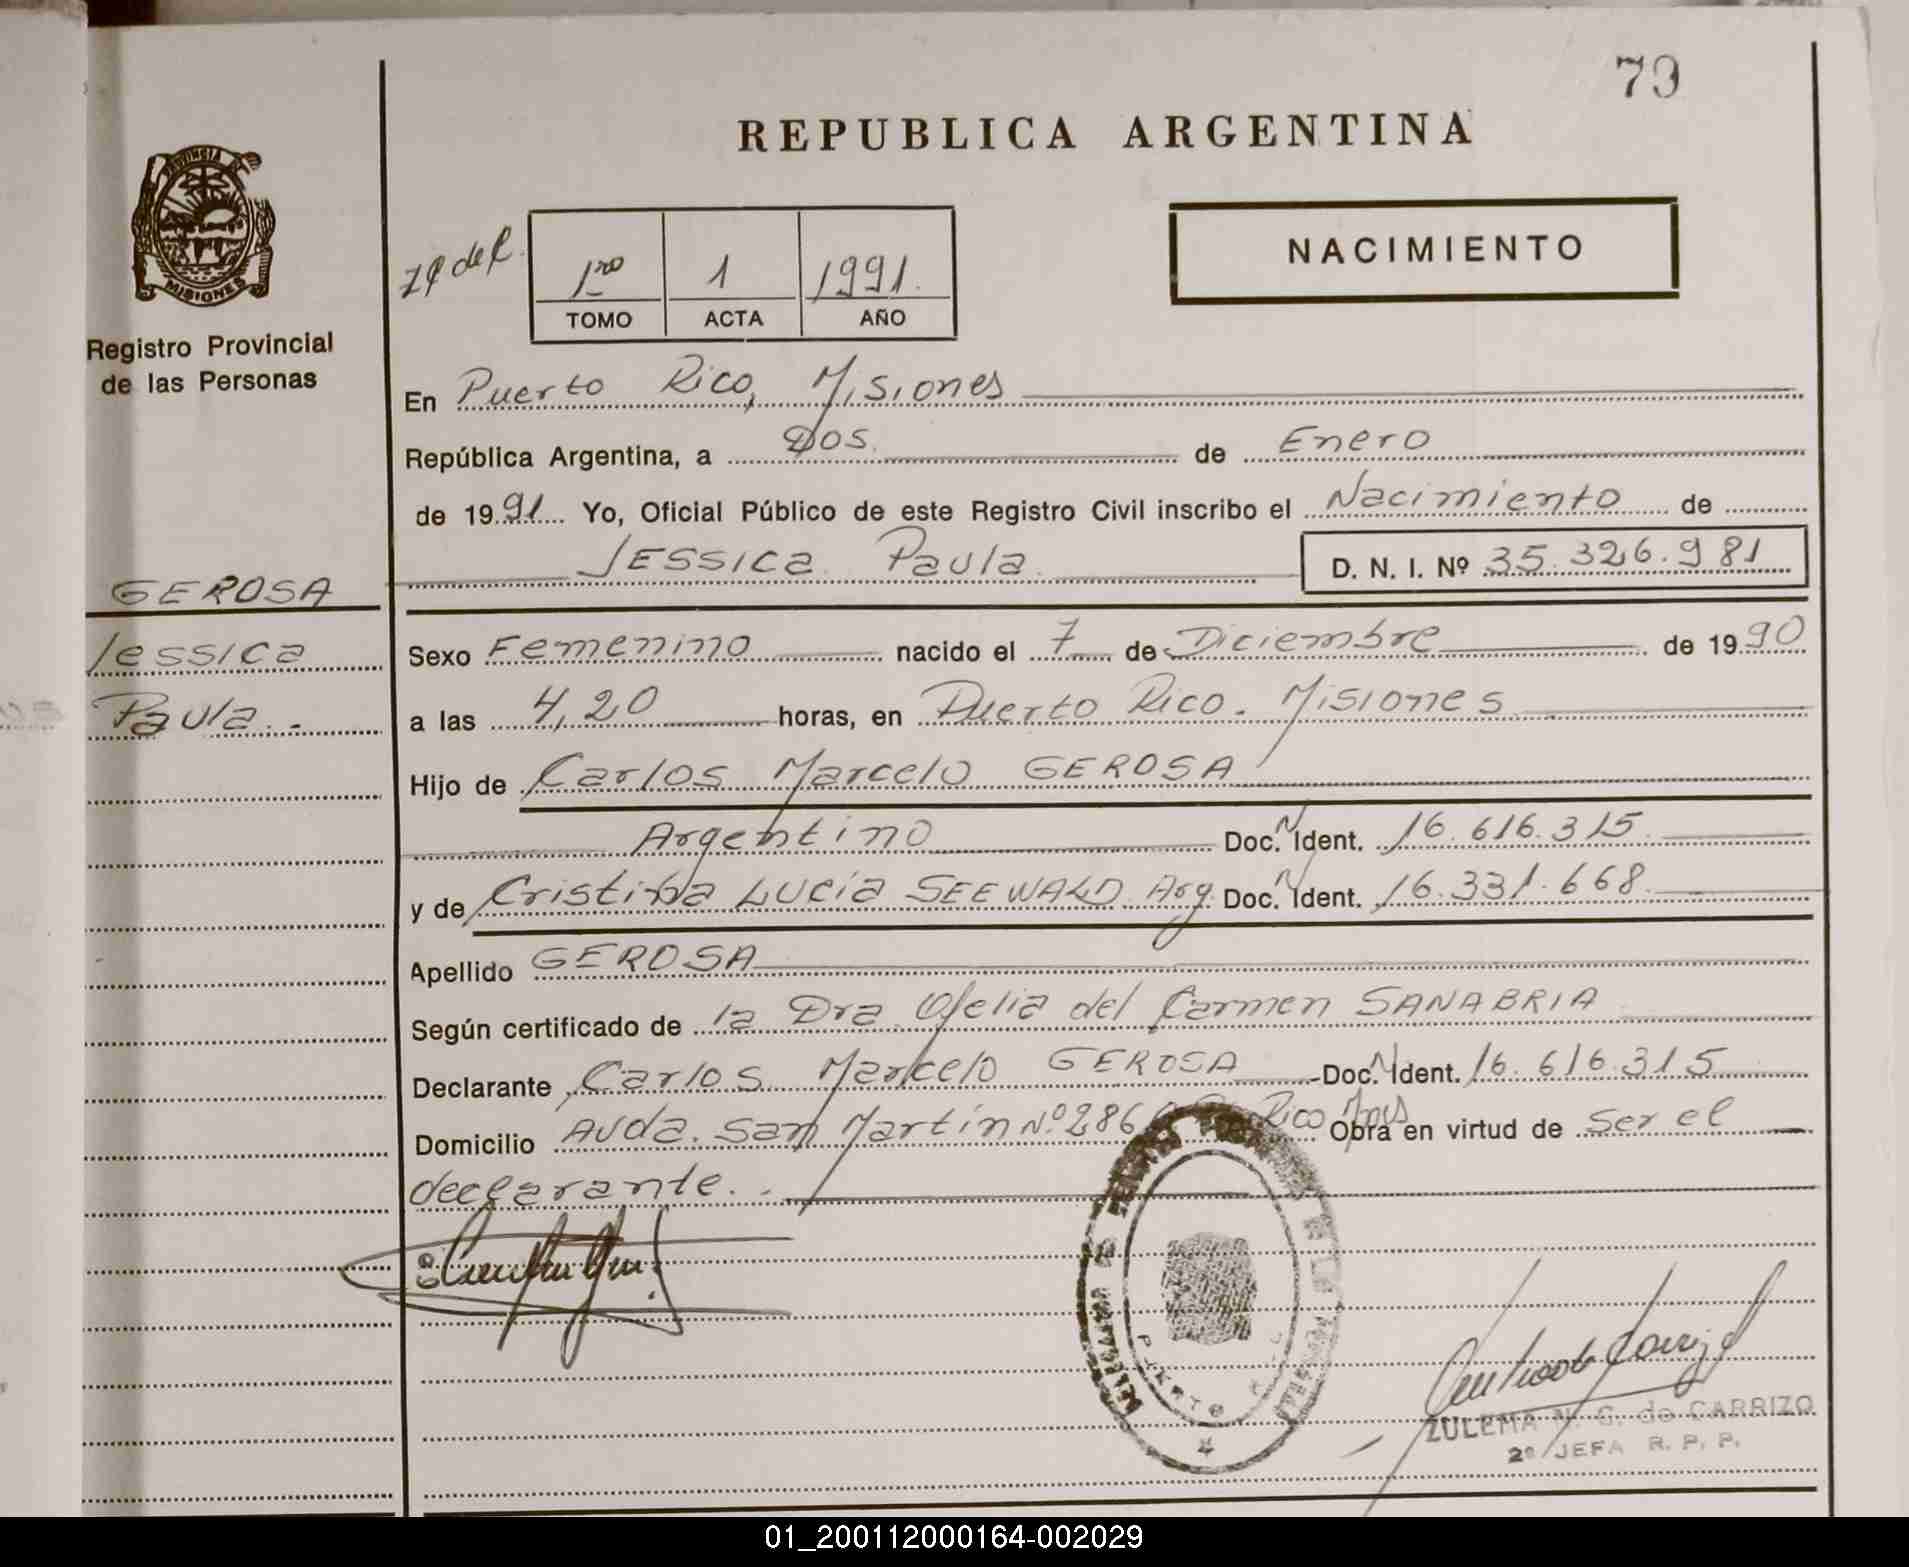 79
REPUBLICA ARGENTINA
PROVINCIA DE
MISIONES
Registro Provincial
de las Personas
1ro 1 1991.
TOMO ACTA AÑO
NACIMIENTO
En Puerto Rico, Misiones
República Argentina, a Dos. de Enero
de 1991 Yo, Oficial Público de este Registro Civil inscribo el Nacimiento de
JESSICA Paula
D. N. I. Nº 35.326.981
GEROSA
Jessica
Paula.-
Sexo Femenino nacido el 7 de Diciembre de 1990
a las 4,20 horas, en Puerto Rico. Misiones
Hijo de Carlos Marcelo GEROSA
Argentino Doc. N Ident. 16.616.315
y de Cristina Lucía SEEWALD Arg. Doc. N Ident. 16.331.668
Apellido GEROSA
Según certificado de la Dra. Ofelia del Carmen SANABRIA
Declarante Carlos Marcelo GEROSA Doc. N Ident. 16.616.315
Domicilio Avda. San Martín Nº 286 Rico Mnes Obra en virtud de ser el
declarante.
DELEGACION DE
PUERTO
ZULEMA N. G. de CARRIZO
2º JEFA R. P. P.
01_200112000164-002029